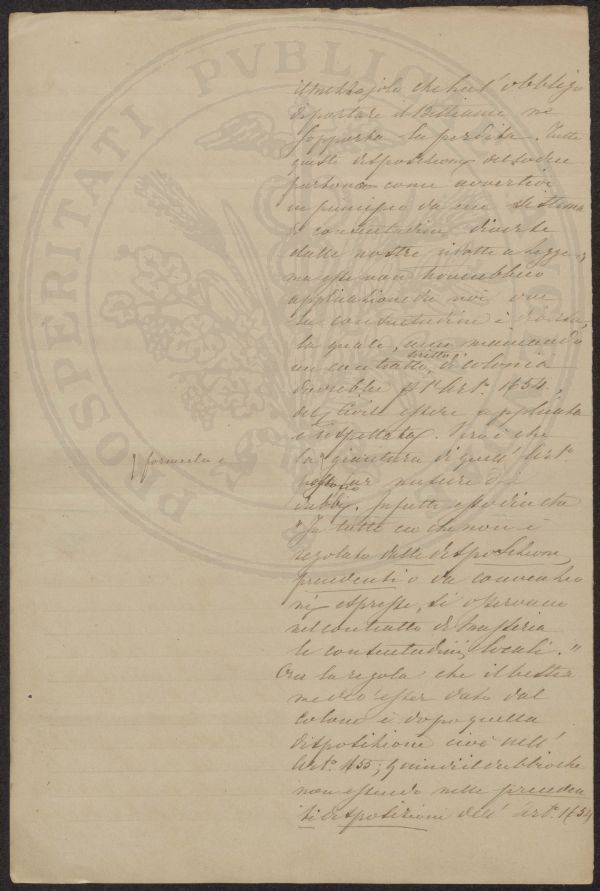 PROSPERITATI PVBLICAE
il mezzajolo che ha l'obbligo
di portare il bestiame ne
sopporta la perdita. Tutte
queste disposizioni del Codice
partono come avvertivo
in principio da un sistema
di consuetudini diverse
dalle nostre ridotte a legge;
ma esse non
applicazione da noi ove
la consuetudine è diversa,
la quale, mancando
un contratto scritto di colonia
dovrebbe pl'Art.º 1654.
del Civile essere applicata
e rispettata. Vero è che
la giacitura di quell'Art.º
[ formula e
far nascere dei
dubbi. Infatti esso dice che
"In tutto ciò che non è
regolato dalle disposizioni
precedenti o da convenzio
ni espresse, si osservano
nel contratto di masseria
le consuetudini locali."
Ora la regola che il bestia
me dev'esser dato dal
colono è dopo quella
disposizione cioè nell'
Art.º 1655; quindi il dubbio che
non essendo nelle preceden
ti disposizioni dell'Art.º 1654